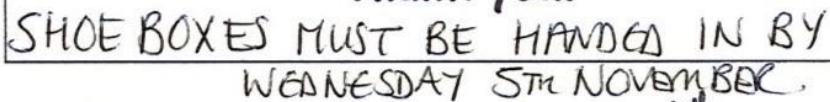 SHOE BOXES MUST BE HANDED IN BY
WEDNESDAY 5TH NOVEMBER.